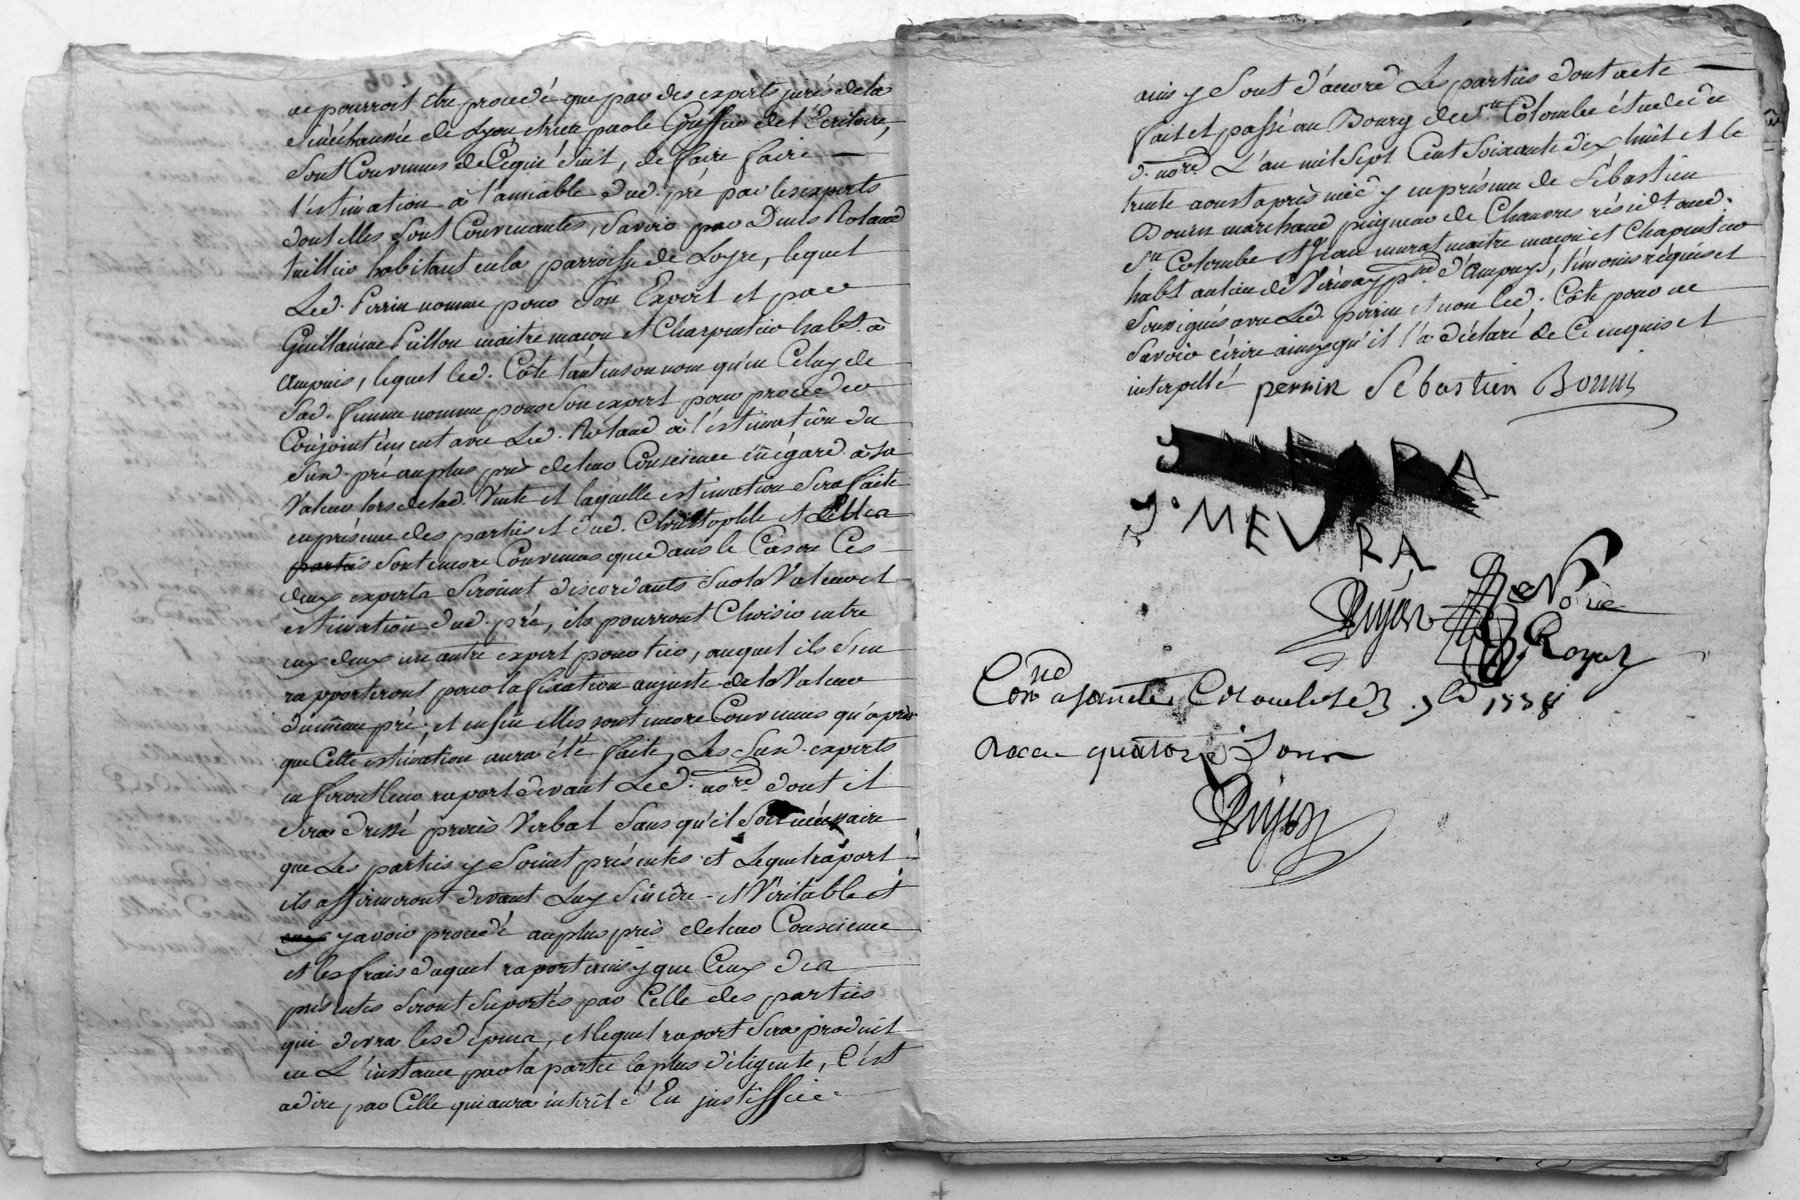 ne pourroit être procedé que par des experts jurés de la
Sénéchaussée de Lyon, et rien par le Greffier de l'Ecritoire,
Sont Convenues de Ce qui Suit, de faire faire
l'estimation à l'amiable dud. pré par les experts
dont elles sont Convenantes, Savoir par Denis Roland
habitant en la parroisse de Loyre, lequel
Led. Perrin nomme pour Son Expert et par
Guillaume maitre maçon et Charpentier habt. à
Ampuis, lequel led. Côte tant en son nom qu'en Celuy de
Sad. femme nomme pour Son expert pour proceder
Conjointement avec Led. Roland à l'estimation du
Susd. pré au plus près de leur Conscience eu égard à sa
Valeur lors de lad. Vente et laquelle estimation Sera faite
en présence des parties et dud. Christophle et
parties sont encore Convenues que dans le Cas ou Ces
deux experts Seroient discordants Sur la Valeur et
estimation dud. pré, ils pourront Choisir entre
eux deux un autre expert pour tier, auquel ils s'en
rapporteront pour la fixation au juste de la Valeur
du même pré, et enfin elles sont encore Convenues qu'après
que Cette estimation aura été faite, Les Susd. experts
en feront leur raport devant Led. nore. dont il
Sera dressé procès Verbal Sans qu'il Soit nécessaire
que Les parties y Soient présentes et Lequel raport
ils affirmeront devant Luy Sincère et Véritable et
y avoir procedé au plus près de leur Conscience
et les frais duquel raport ainsy que Ceux des
présentes Seront Suportés par Celle des parties
qui devra les dépens, et lequel raport Sera produit
en L'instance par la partie la plus diligente, C'est
adire par Celle qui aura intérêt d'En justiffier
ainsy Sont d'accord Les parties dont acte
fait et passé au Bourg de Ste. Colombe étude du
d. nore. L'an mil Sept Cent Soixante dix huit et le
trente aoust après midy en présence de Sébastien
Bourn marchand peigneur de Chanvres résidt. aud.
Ste. Colombe et Jean murat maitre maçon et Charpentier
habt. au lieu de Vérinay psse. d'Ampuis, témoins réquis et
Soussignés avec Led. perrin et non led. Côte pour ne
Savoir écrire ainsy qu'il l'a déclaré de Ce enquis et
interpellé perrin Sebastien Bourn
J. MEVRA
Dujon Nore Royal
Conlle a sainte Colombe le 3 7bre 1778
Recu quatorze Sous
Dujon